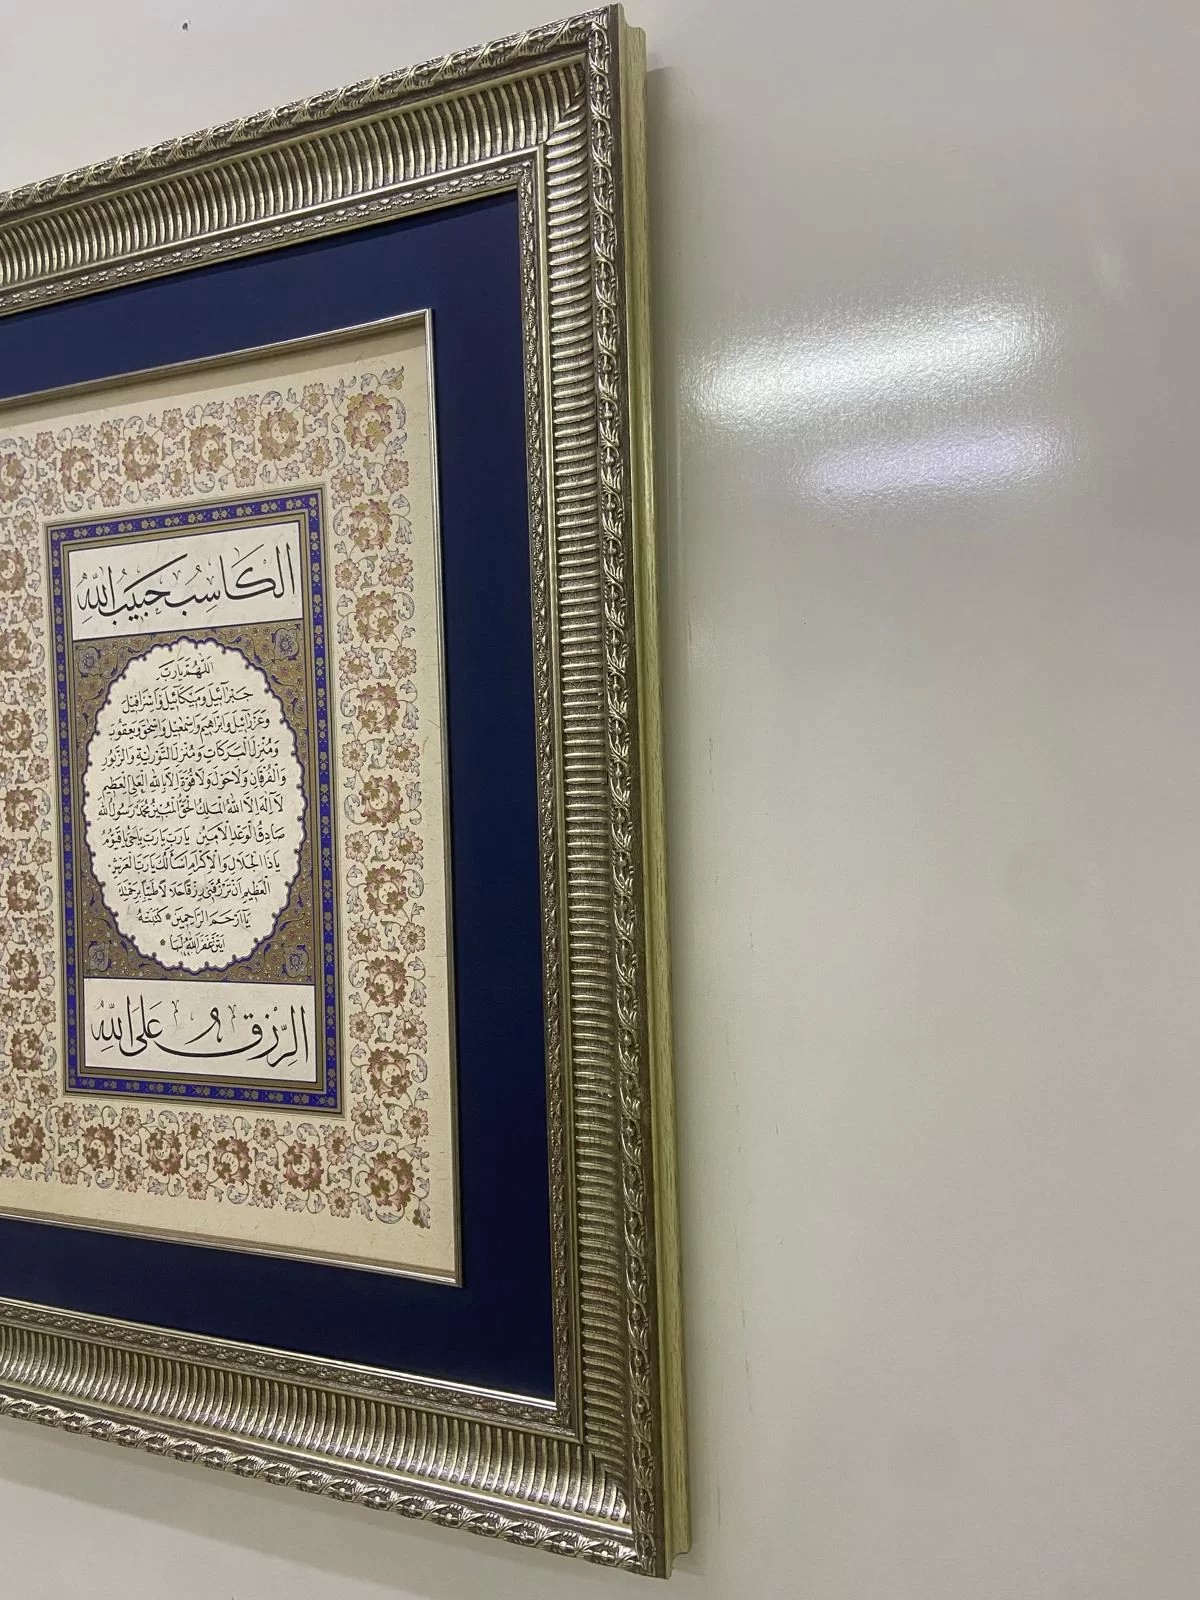 الكَاسِبُ حَبِيبُ اللّٰهِ
اَللّٰهُمَّ يَارَبَّ
جَبْرَآئِيلَ وَمِيكَآئِيلَ وَاِسْرَافِيلَ
وَعَزْرَآئِيلَ وَاِبْرَاهِيمَ وَاِسْمٰعِيلَ وَاِسْحٰقَ وَيَعْقُوبَ
وَمُنْزِلَ الْبَرَكَاتِ وَمُنْزِلَ التَّوْرٰيةِ وَالزَّبُورِ
وَالْفُرْقَانِ وَلَا حَوْلَ وَلَا قُوَّةَ اِلَّا بِاللّٰهِ الْعَلِيِّ الْعَظِيمِ
لَا اِلٰهَ اِلَّا اللّٰهُ الْمَلِكُ الْحَقُّ الْمُبِينُ مُحَمَّدٌ رَسُولُ اللّٰهِ
صَادِقُ الْوَعْدِ الْاَمِينُ يَارَبِّ يَارَبِّ يَاحَيُّ يَاقَيُّومُ
يَاذَا الْجَلَالِ وَالْاِكْرَامِ اَسْأَلُكَ يَارَبَّ الْعَرْشِ
الْعَظِيمِ اَنْ تَرْزُقَنِي رِزْقًا حَلَالًا طَيِّبًا بِرَحْمَتِكَ
يَآ اَرْحَمَ الرَّاحِمِينَ * كَتَبَتْهُ
غَفَرَ اللّٰهُ لَهَا *
الرِّزْقُ عَلَى اللّٰهِ